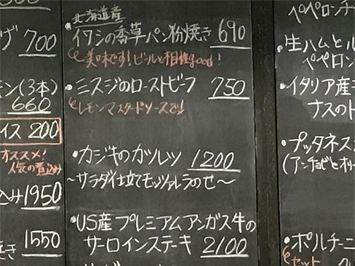 北海道産
・イワシの香草パン粉焼き 690
美味です!ビールと相性good!
・ミスジのローストビーフ 750
レモンマスタードソースで!!
・カジキのカツレツ 1200
〜サラダ仕立てモッツァレラのせ〜
・US産プレミアムアンガス牛の
サーロインステーキ 2100
700
(3本)
660
イス 200
オススメ!
人気の煮込み
込み 1950
焼き 1550
ペペロンチ
・生ハムとル
ペペロン
・イタリア産モ
ナスのト
・プッタネス
(アンチョビとオリ
・ポルチーニ
セット